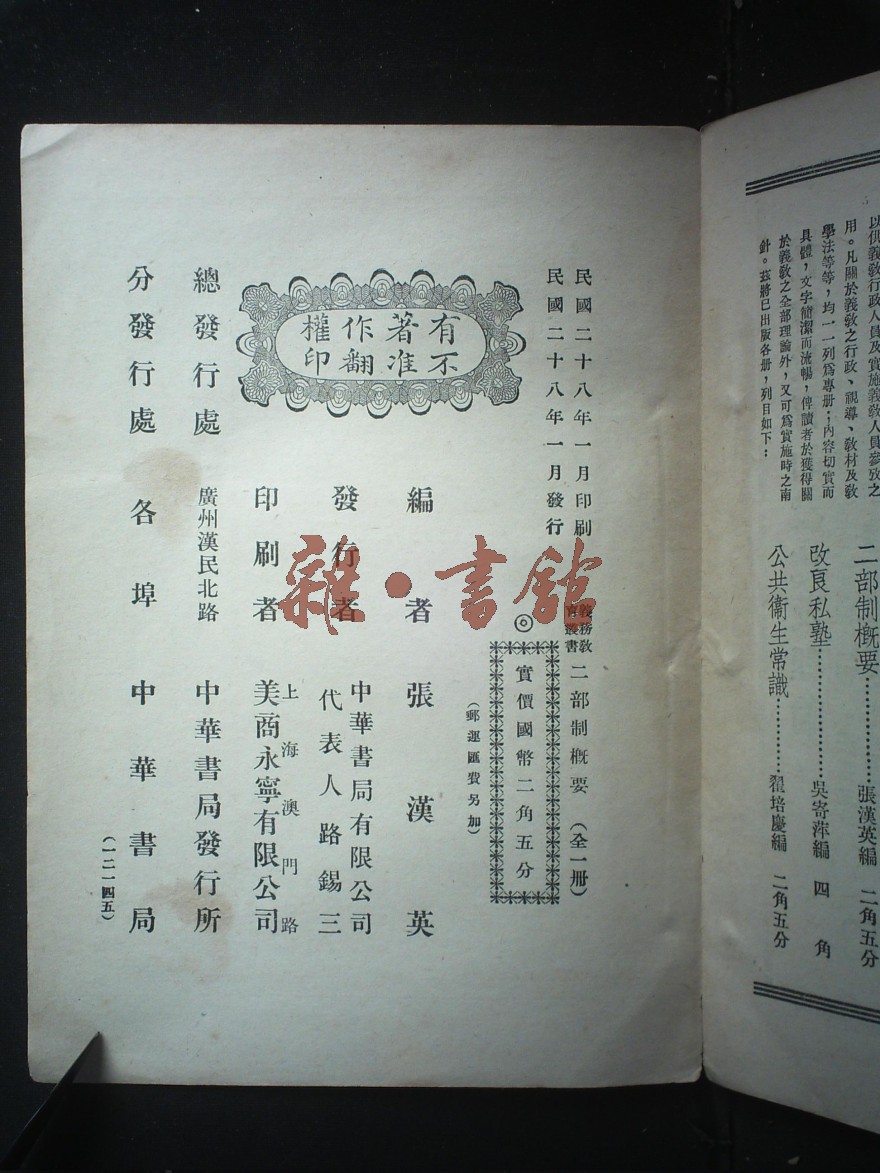 以供義教行政人員及實施義教人員參攷之
用。凡關於義教之行政、視導、教材及教
學法等等，均一一列爲專册；內容切實而
具體，文字簡潔而流暢，俾讀者於獲得關
於義教之全部理論外，又可爲實施時之南
針。茲將已出版各册，列目如下：
二部制概要…………張漢英編 二角五分
改良私塾…………吳寄萍編 四角
公共衞生常識…………翟培慶編 二角五分
民國二十八年一月印刷
民國二十八年一月發行
義務教育叢書 二部制概要（全一册）
◎
實價國幣二角五分
（郵運匯費另加）
有著作權
不准翻印
編者 張漢英
發行者 中華書局有限公司
代表人 路錫三
印刷者 上海澳門路
美商永寧有限公司
總發行處 廣州漢民北路 中華書局發行所
分發行處 各埠 中華書局
（一二一四五）
雜·書館